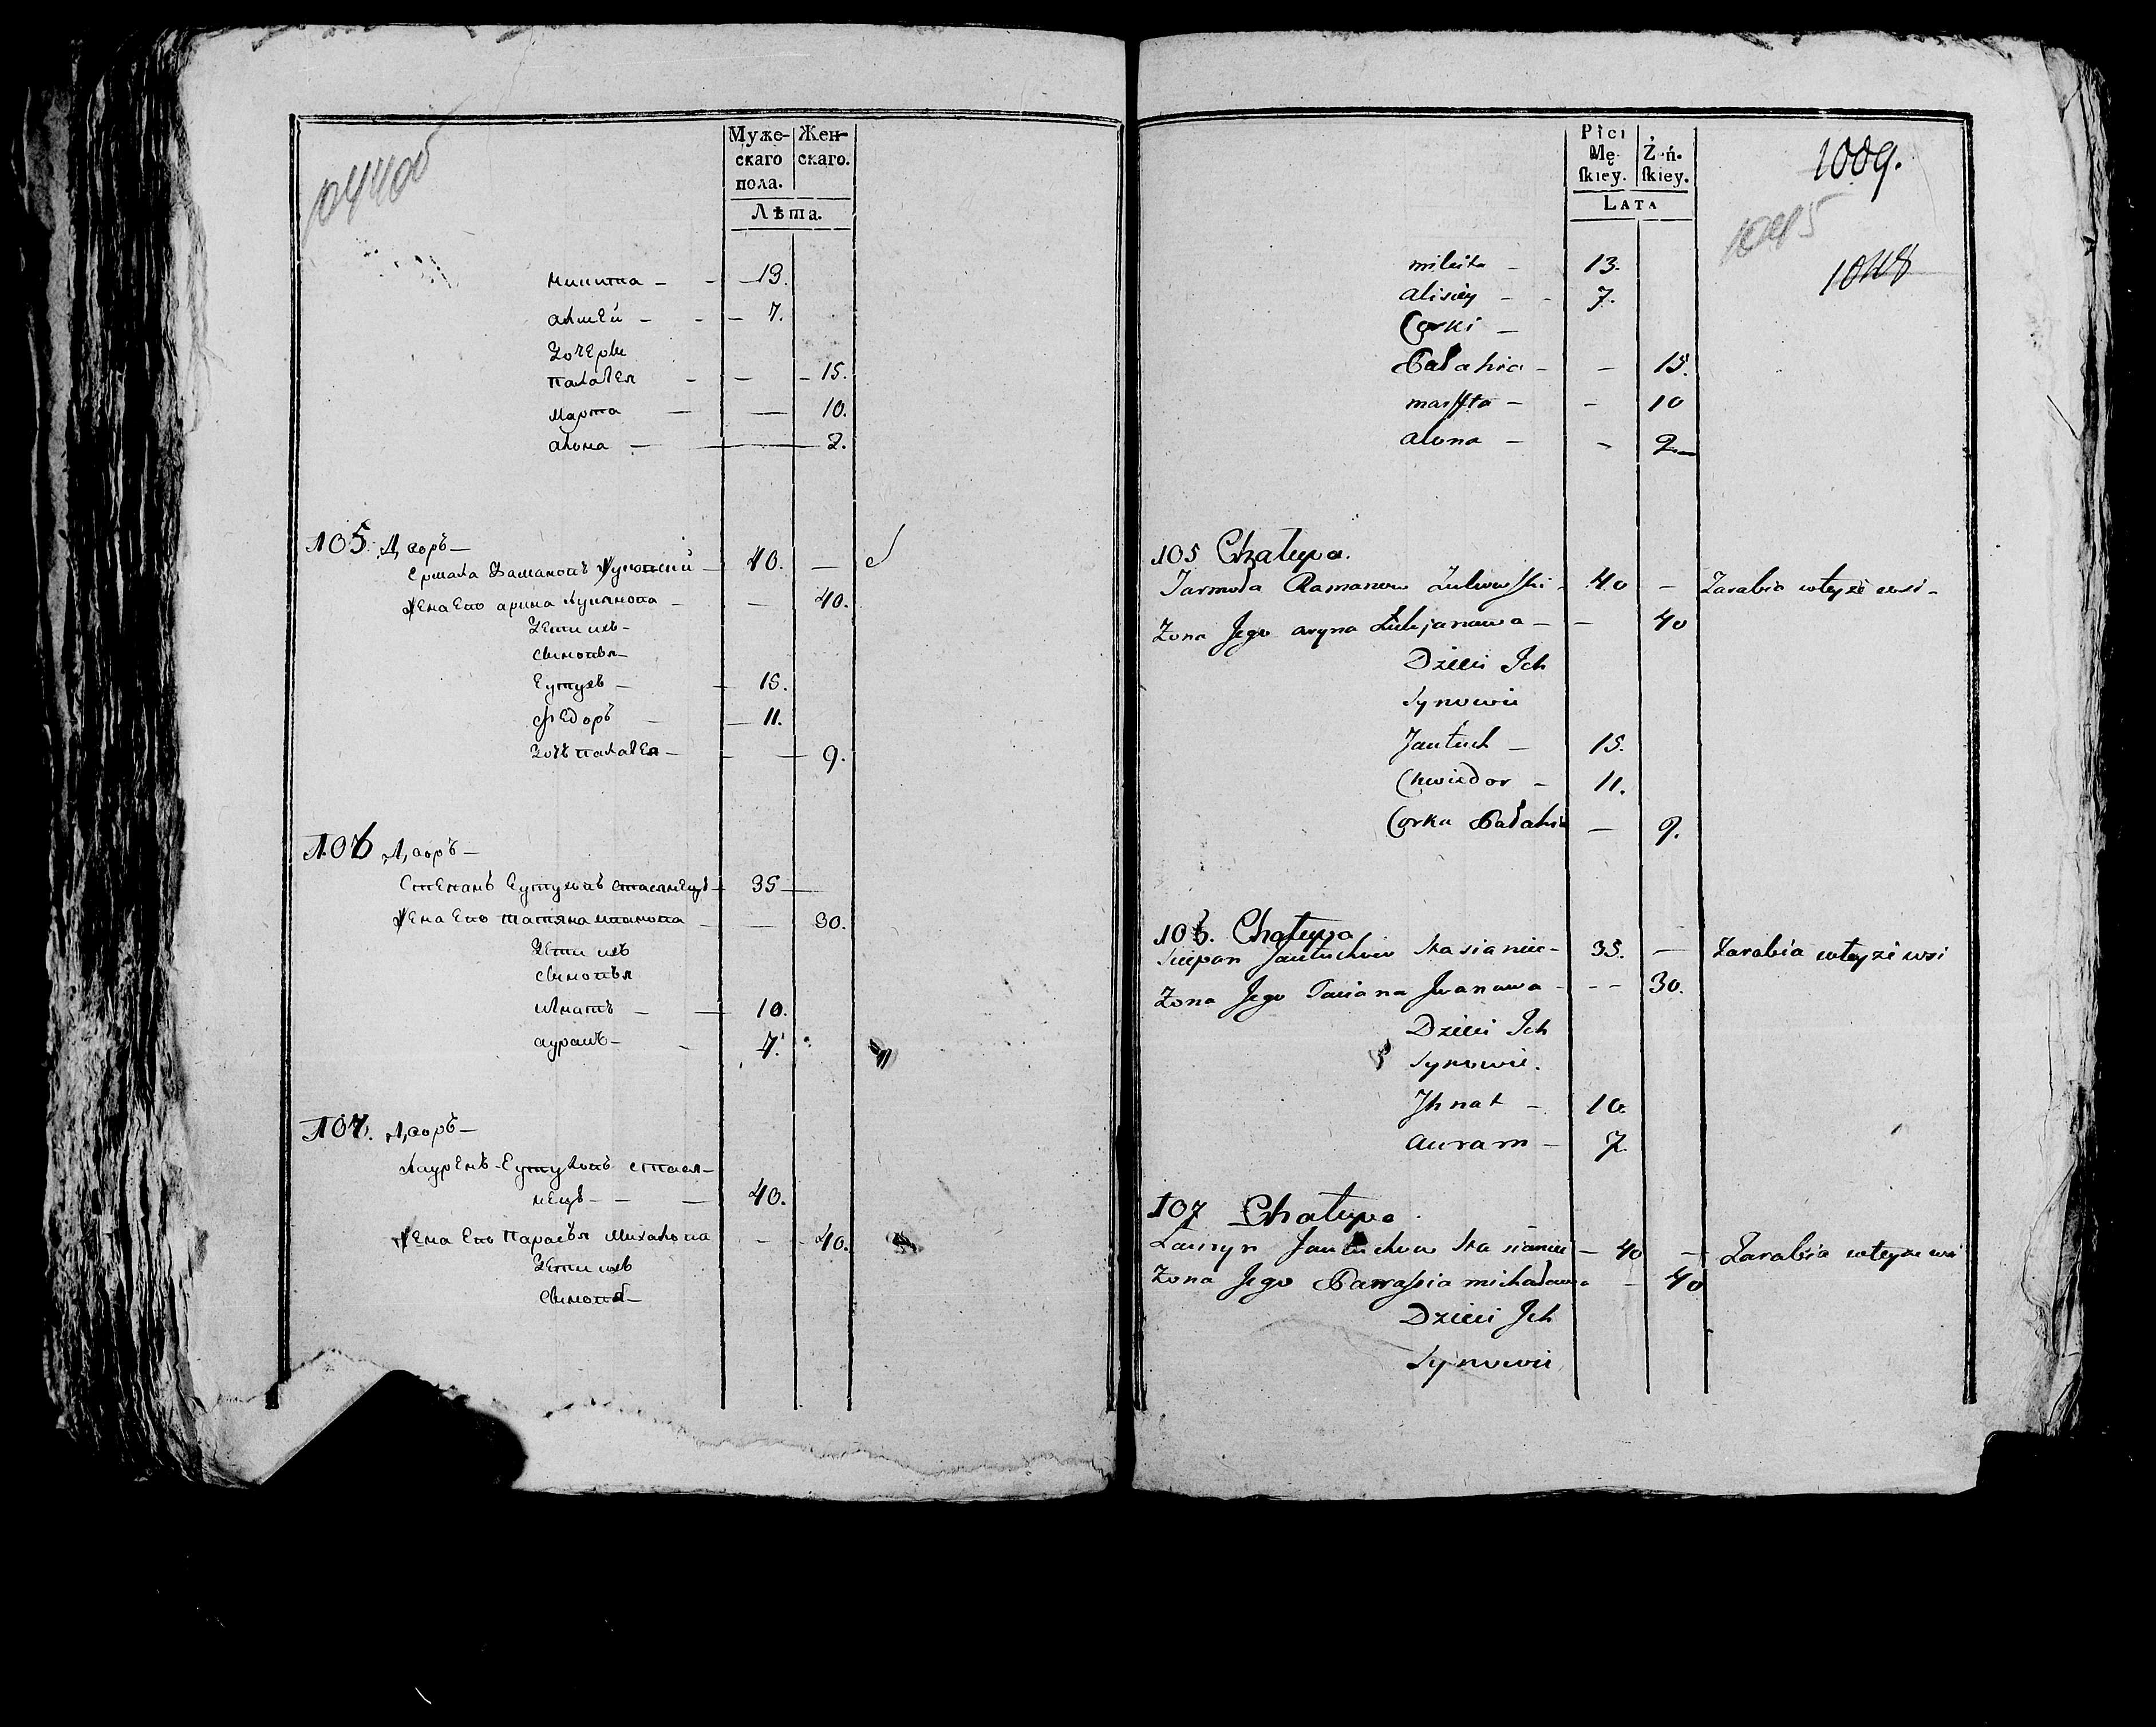 Муже-
скаго
пола.
Жен-
скаго.
Лѣта.
микита - - 13.
алисей - - - 7.
дочери
палагея - - - 15.
марта - - 10.
алона - - 2.
105. Дворъ -
Ермола Раманопъ Лукопский - 40. -
Жена Его арина Лукянопа - - 40.
дети ихъ -
сынопья -
Еутухъ - - 15.
Федоръ - - 11.
дочь палагея - - - 9.
106 Дворъ -
Степанъ Еутухопъ стасянецъ - 35 -
Жена Его татяна ипанопа - - 30.
дети ихъ
сынопья
игнатъ - - 10.
аурамъ - - 7.
107. Дворъ -
Лауренъ Еутухопъ стася-
нецъ - - - 40.
Жена Его Парасья Михалопа - - 40.
дети ихъ
сынопья -
Płci
Mę-
ſkiey.
Żeń-
ſkiey.
LATA
1009.
1045
1048
mikita - 13.
alisiey - - 7.
Corki -
Pałahia - - 15.
marffta - - 10
alona - - 2. -
105 Chałupa.
Jarmoła Ramanow Łukowski - 40 - Zarabia wteyże wsi -
Zona Jego aryna Łukjanowa - - 40
Dzieci Ich
Synowie
Jautuch - 15.
Chwiedor - 11.
Corka Pałahia - 9.
106. Chałupa
Sciepan Jautuchow Stasianiec - 35. - Zarabia wteyże wsi
Zona Jego Taciana Iwanawa - - - 30.
Dzieci Ich
Synowie.
Ihnat - 10.
auram - 7.
107 Chałupa
Łauryn Jautuchow Stasianiec - 40 - Zarabia wteyże wsi
Zona Jego Parasia michaława - 40
Dzieci Ich
Synowie